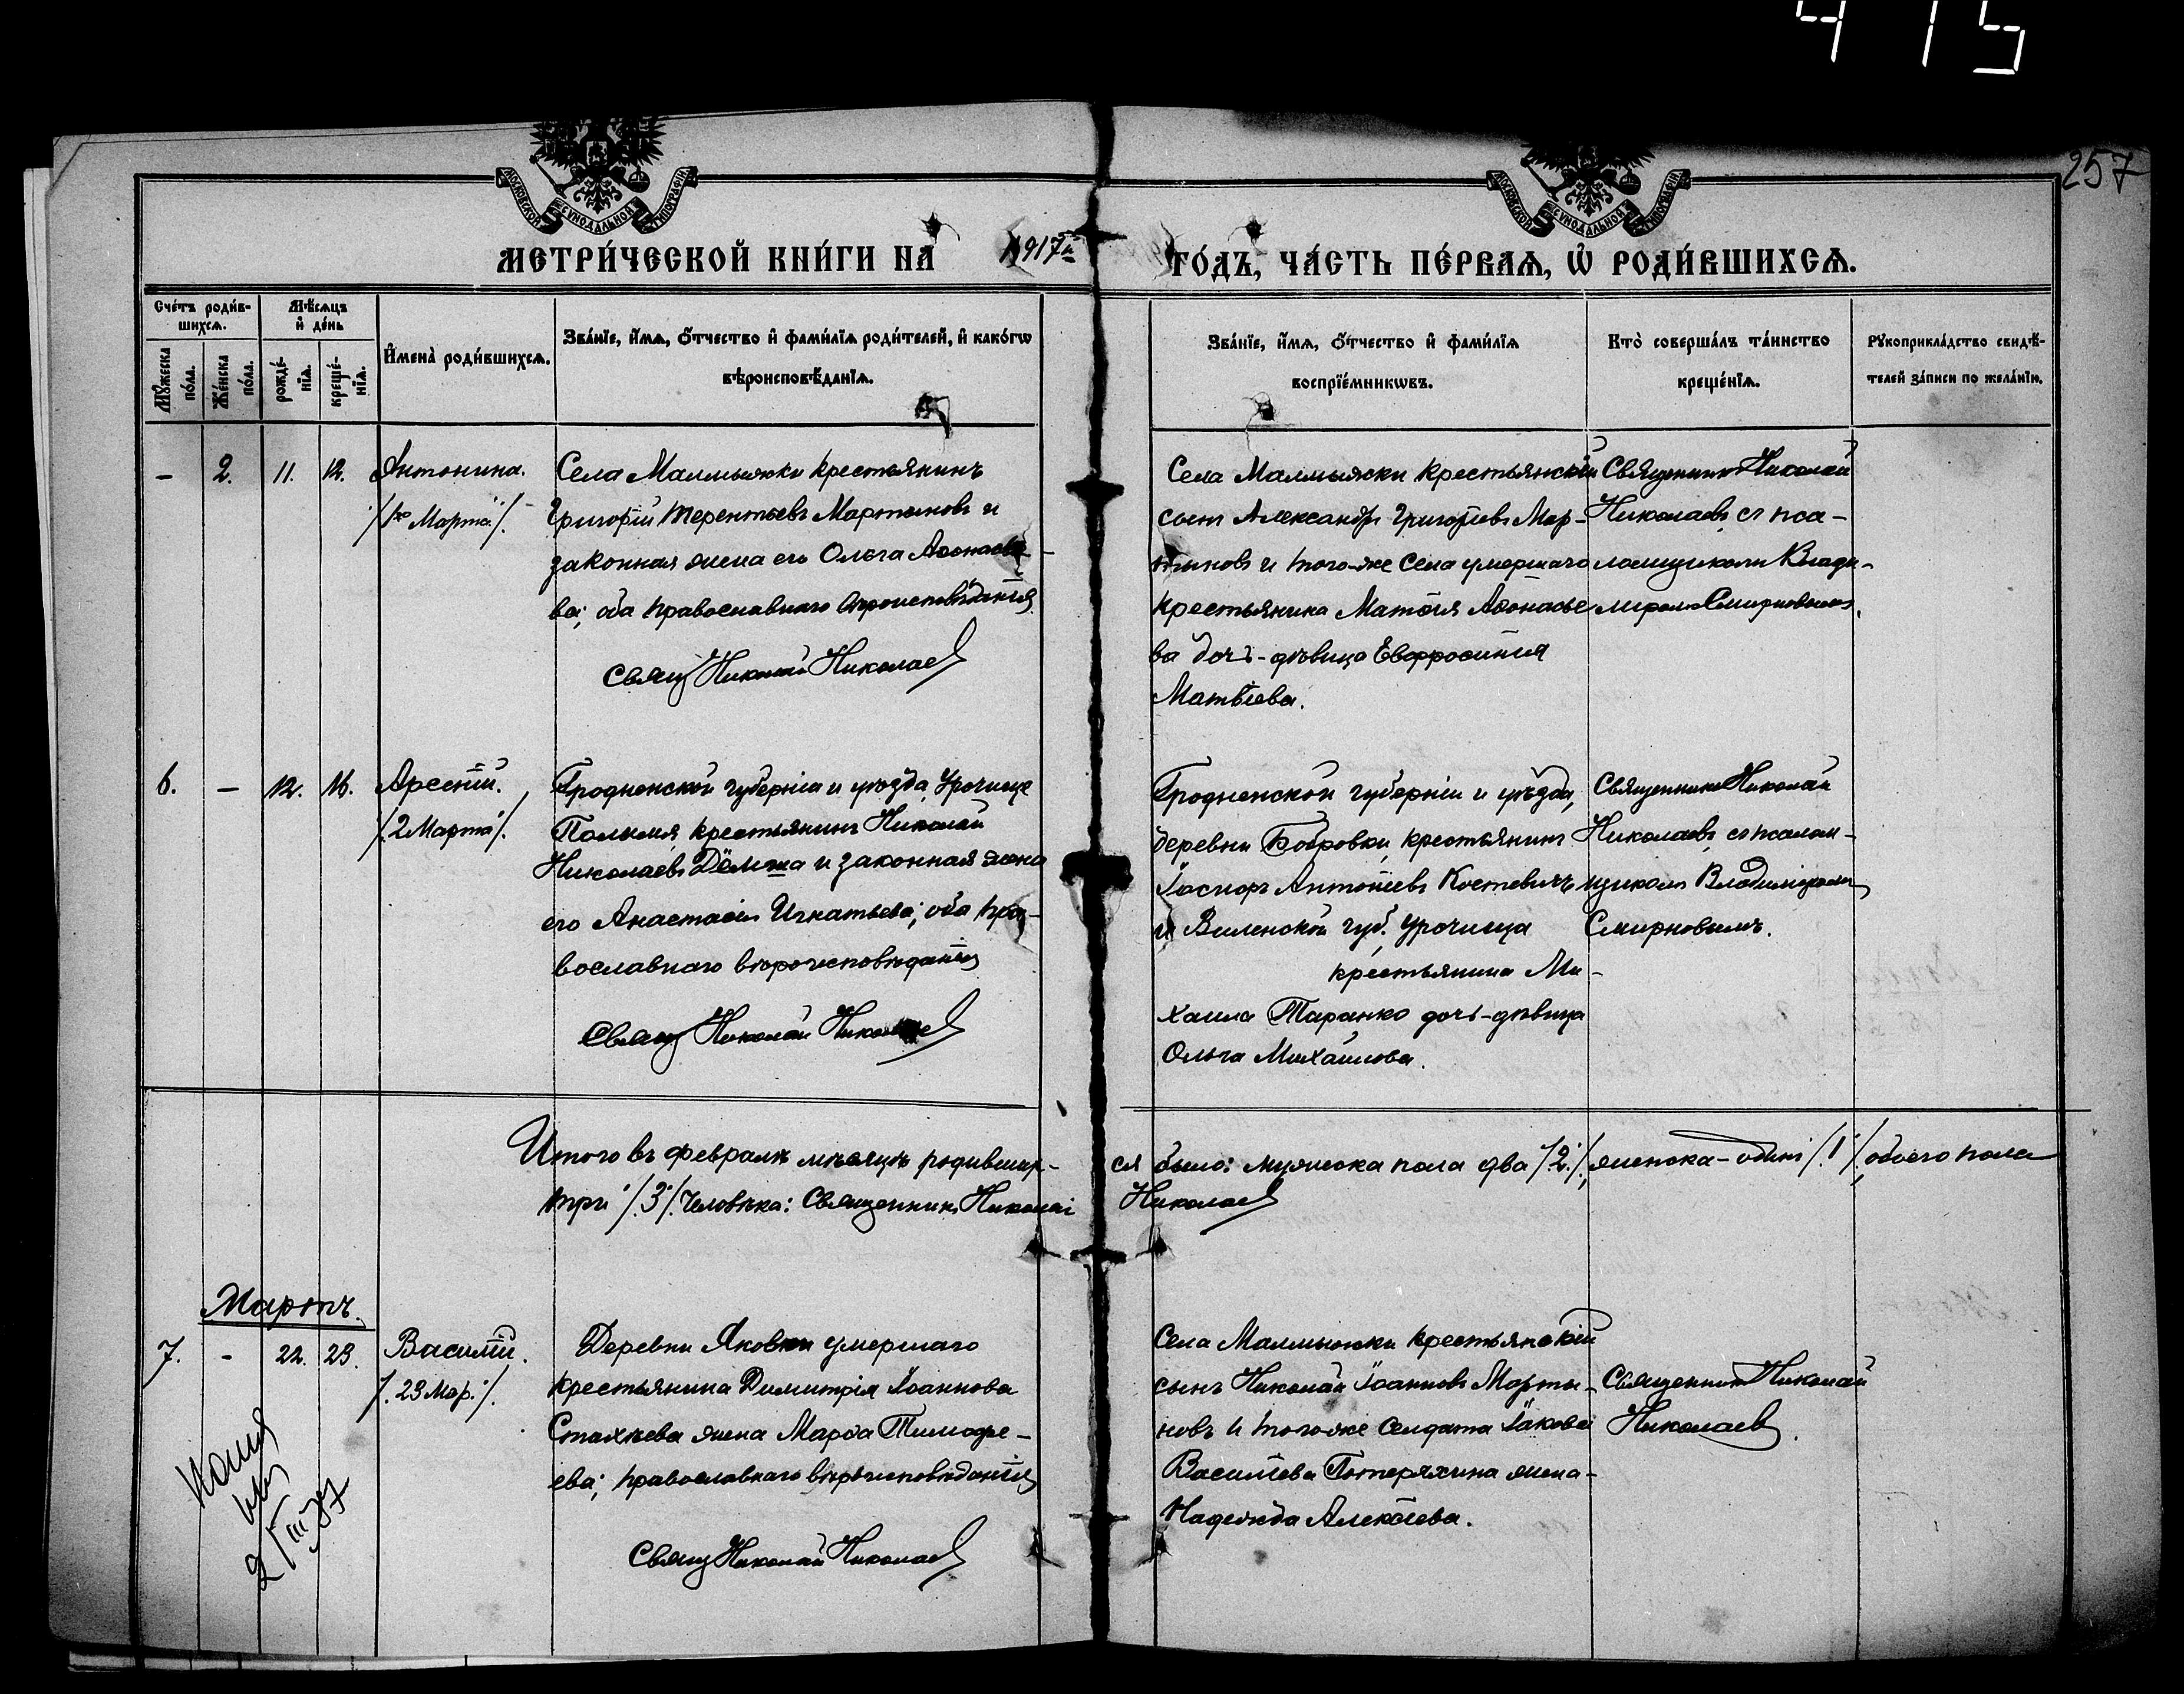 415
257
МОСКОВСКОЙ СѴНОДАЛЬНОЙ ТИПОГРАФІИ
МОСКОВСКОЙ СѴНОДАЛЬНОЙ ТИПОГРАФІИ
МЕТРИ́ЧЕСКОЙ КНИ́ГИ НА 1917й ГО́ДЪ, ЧА́СТЬ ПЕ́РВАѦ, Ѡ҆ РОДИ́ВШИХСѦ.
Сче́тъ роди́в-
шихсѧ.
Мꙋ́жеска
по́ла.
Же́нска
по́ла.
Мѣ́сѧцъ
и҆ де́нь
рожде́-
нїѧ.
креще́-
нїѧ.
И҆мена̀ роди́вшихсѧ.
Зва́нїе, и҆́мѧ, ѻ҆́тчество и҆ фами́лїѧ роди́телей, и҆ како́гѡ
вѣроисповѣ́данїѧ.
Зва́нїе, и҆́мѧ, ѻ҆́тчество и҆ фами́лїѧ
воспрїе́мникѡвъ.
Кто̀ соверша́лъ та́инство
креще́нїѧ.
Рꙋкоприкла́дство свидѣ́-
телей за́писи по жела́нїю.
– 2. 11. 12. Антонина.
/1го Марта/.
Села Малмыжки крестьянинъ
Григорій Терентьевъ Мартыновъ и
законная жена его Ольга Аѳонасье-
ва; оба православнаго вѣроисповѣданія
Свящ Николай Николаев
Села Малмыжки крестьянскій
сынъ Александръ Григоріевъ Мар-
тыновъ и того-же села умершаго
крестьянина Матѳія Аѳонасье
ва дочь-дѣвица Евфросинія
Матвіева.
Священникъ Николай
Николаевъ съ пса-
ломщикомъ Влади-
міромъ Смирновымъ.
6. – 12. 16. Арсеній.
/.2 Марта/.
Гродненской губерніи и уѣзда, Урочище
Полымя, крестьянинъ Николай
Николаевъ и законная жена
его Анастасія Игнатьева; оба пра-
вославнаго вѣроисповѣданія
Свящ Николай Николаев
Гродненской губерніи и уѣзда,
деревни Бобровки, крестьянинъ
Іосифъ Антоніевъ Костевичъ
и Виленской губ. Урочища
крестьянина Ми-
хаила Таранко дочь-дѣвица
Ольга Михайлова.
Священникъ Николай
Николаевъ, съ псалом-
щикомъ Владиміромъ
Смирновымъ.
Итого въ февралѣ мѣсяцѣ родивших-ся было: мужеска пола два /.2./, женска – одинъ /.1./, обоего пола
три /.3./. человѣка: Священникъ Николай Николаев
Мартъ.
7. - 22. 23. Василій.
/.23 Мар./.
Деревни Яковки умершаго
крестьянина Димитрія Іоаннова
Стахѣева жена Марѳа Тимофе-
ева; православнаго вѣроисповѣданія
Свящ Николай Николаев
Села Малмыжки крестьянскій
сынъ Николай Іоанновъ Марты-
новъ и того-же села солдата Іакова
Василіева Потеряхина жена-
Надежда Алексіева.
Священникъ Николай
Николаев.
Копия
2/III 37